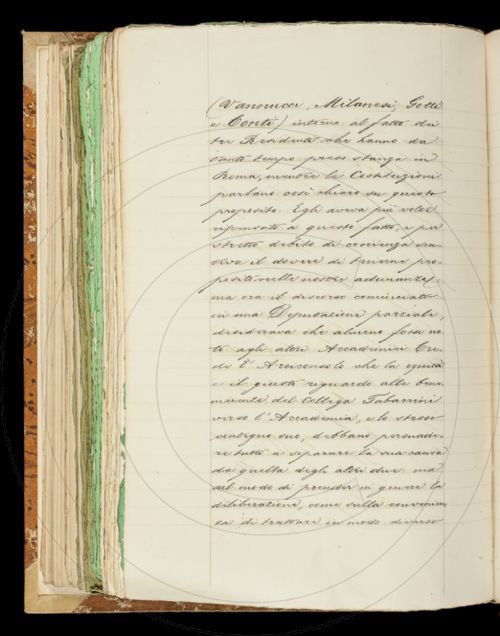 (Vannucci, Milanesi, Gotti
e Conti) intorno al fatto dei
tre Residenti che hanno da
tanto tempo preso stanza in
Roma, mentre le Costituzioni
parlano così chiaro su questo
proposito. Egli aveva più volte
ripensato a questo fatto, e per
stretto debito di coscienza sen-
tiva il dovere di tenerne pro-
posito nelle nostre adunanze;
ma ora il discorso cominciato
in una Deputazione parziale,
desiderava che almeno fosse no-
to agli altri Accademici. Cre-
de l'Arciconsolo che la equità
e il giusto riguardo alle bene-
merenze del Collega Tabarrini
verso l'Accademia, e lo stesso
contegno suo, debbano persuade-
re tutti a separare la sua causa
da quella degli altri due: ma
sul modo di prender in genere la
deliberazione, come sulla convenien-
za di trattare in modo diverso